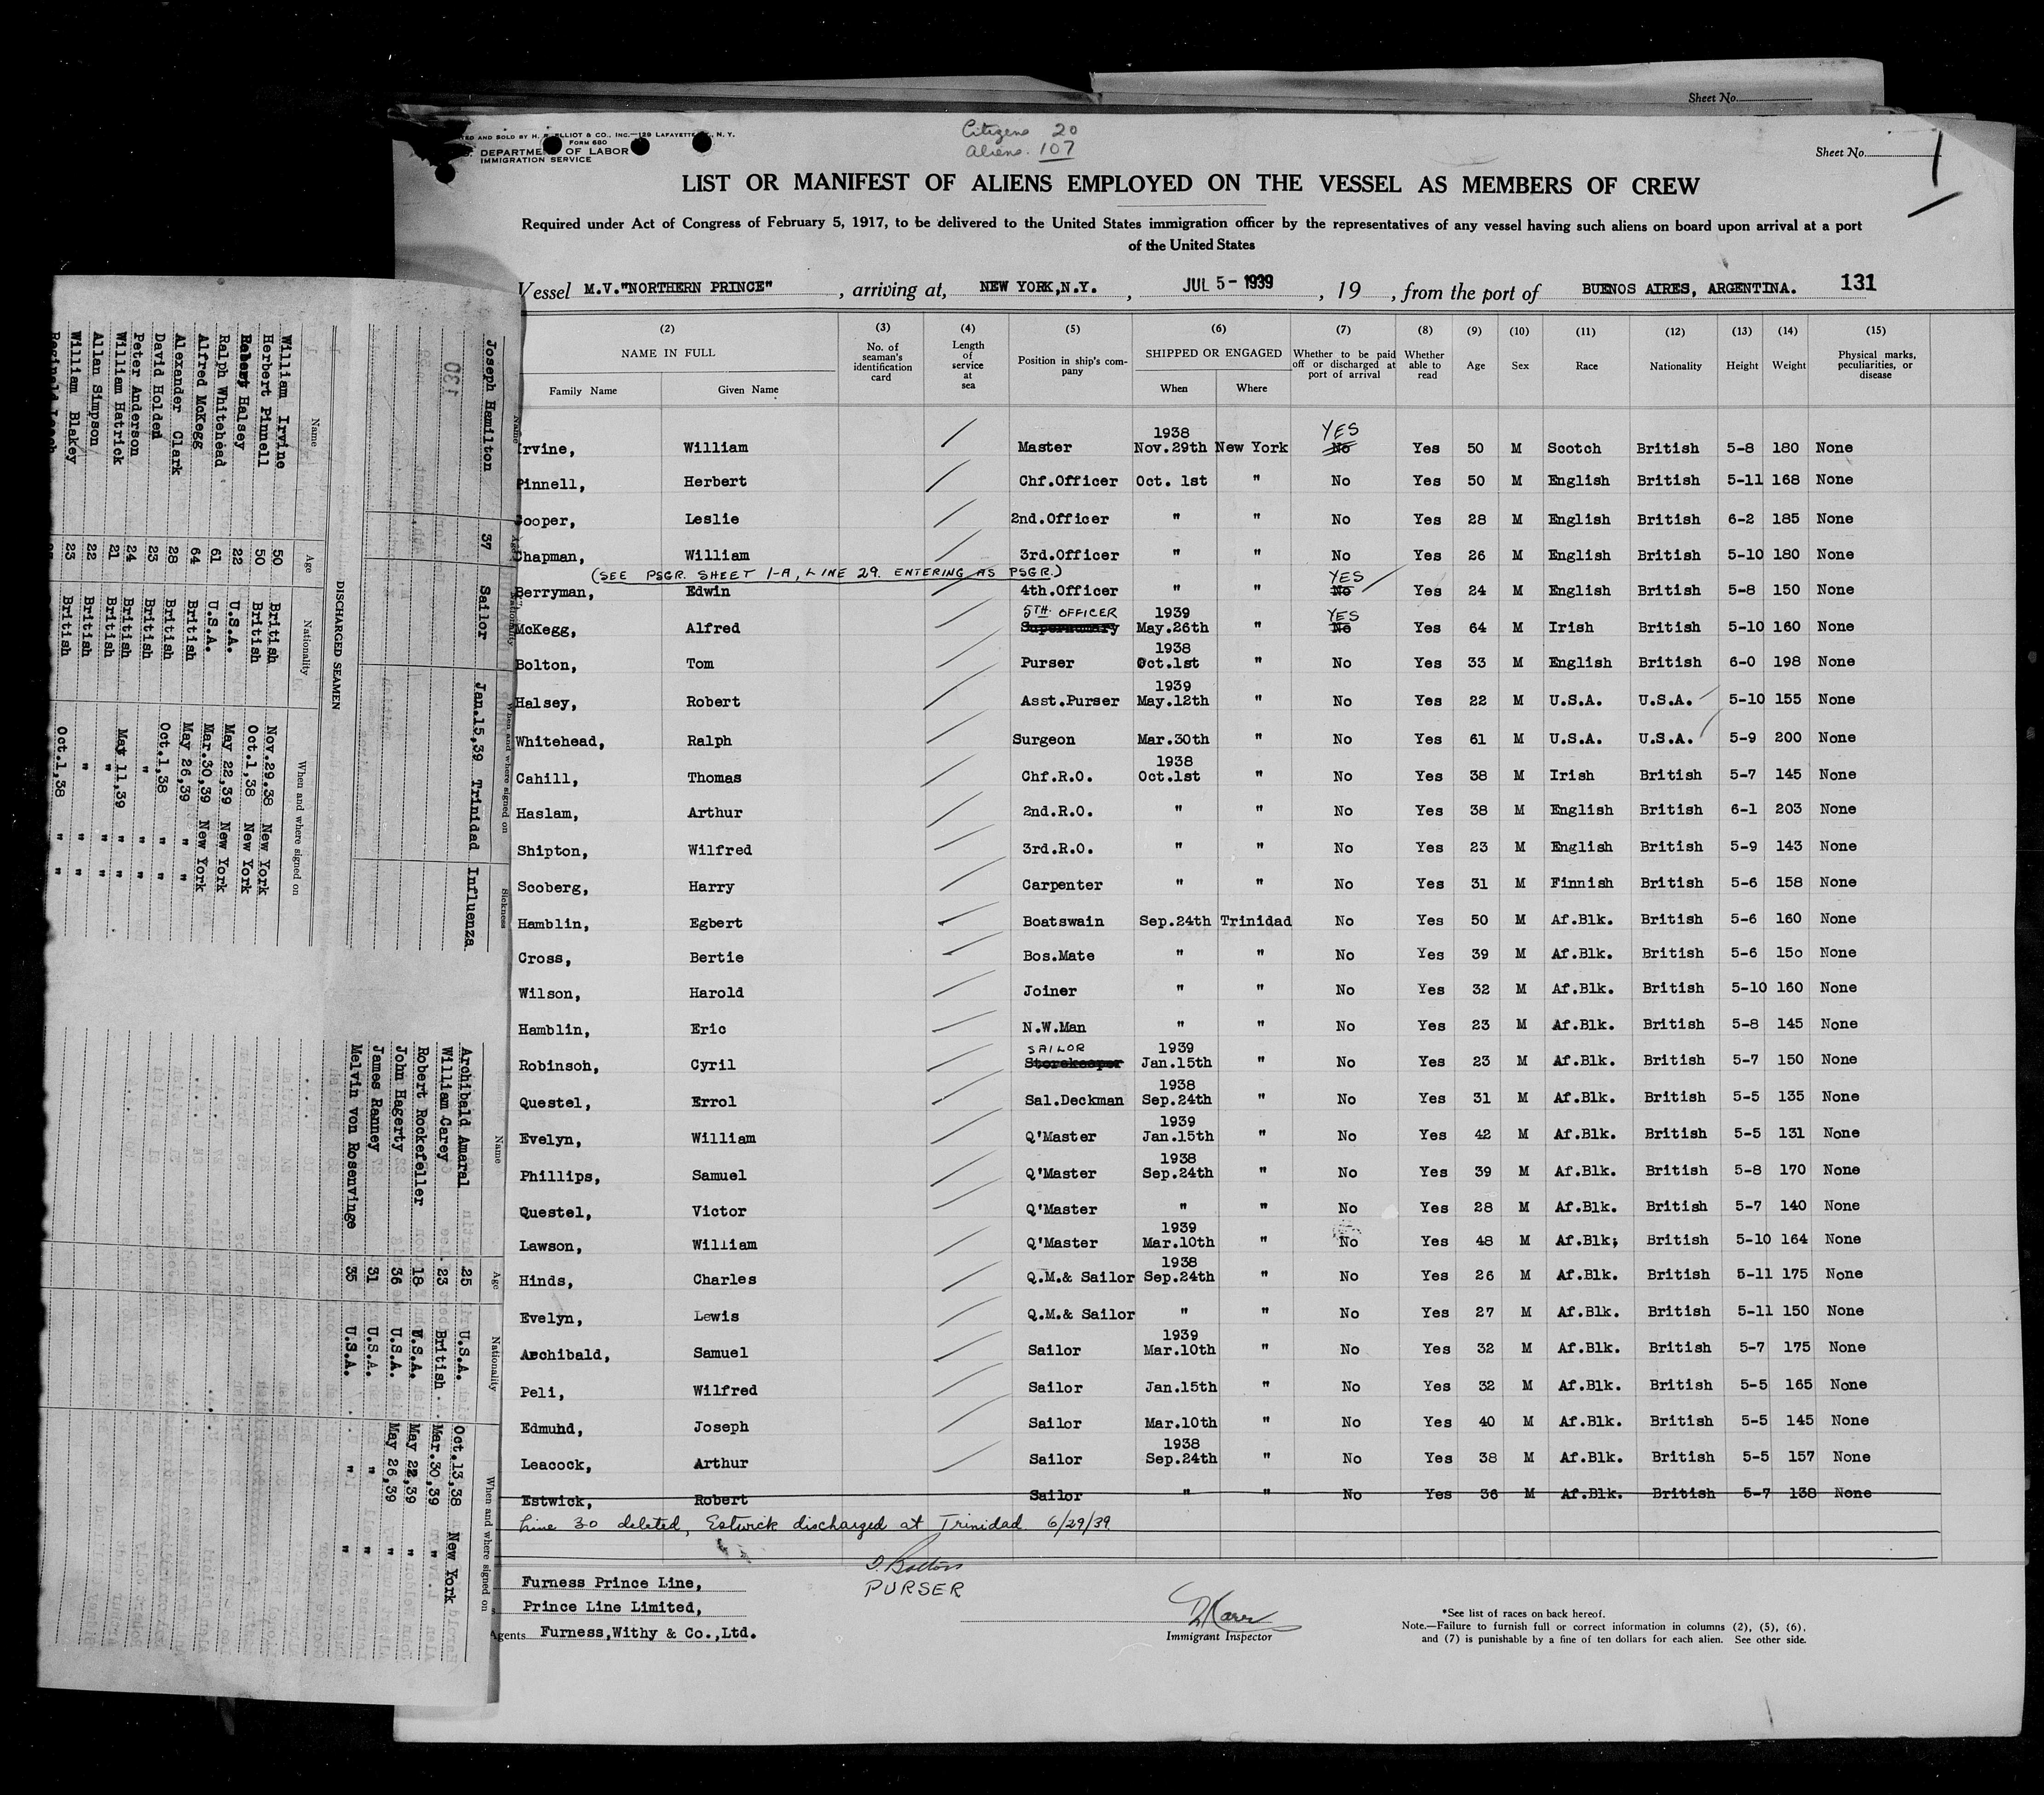 Sheet No.
Citizens 20
Aliens. 107
AND SOLD BY H. ELLIOT & CO., INC.—129 LAFAYETTE , N. Y.
FORM 680
DEPARTMENT OF LABOR
IMMIGRATION SERVICE
Sheet No. 1
LIST OR MANIFEST OF ALIENS EMPLOYED ON THE VESSEL AS MEMBERS OF CREW
Required under Act of Congress of February 5, 1917, to be delivered to the United States immigration officer by the representatives of any vessel having such aliens on board upon arrival at a port
of the United States
Vessel M.V."NORTHERN PRINCE", arriving at, NEW YORK,N.Y., JUL 5- 1939, 19 , from the port of BUENOS AIRES, ARGENTINA. 131
(2) (3) (4) (5) (6) (7) (8) (9) (10) (11) (12) (13) (14) (15)
NAME IN FULL No. of seaman's identification card Length of service at sea Position in ship's company SHIPPED OR ENGAGED Whether to be paid off or discharged at port of arrival Whether able to read Age Sex Race Nationality Height Weight Physical marks, peculiarities, or disease
Family Name Given Name When Where
1938 YES
Irvine, William Master Nov.29th New York No Yes 50 M Scotch British 5-8 180 None
Pinnell, Herbert Chf.Officer Oct. 1st " No Yes 50 M English British 5-11 168 None
Cooper, Leslie 2nd.Officer " " No Yes 28 M English British 6-2 185 None
Chapman, William 3rd.Officer " " No Yes 26 M English British 5-10 180 None
(SEE PSGR. SHEET 1-A, LINE 29. ENTERING AS PSGR.) YES
Berryman, Edwin 4th.Officer " " No Yes 24 M English British 5-8 150 None
5TH. OFFICER 1939 YES
McKegg, Alfred Supernumary May.26th " No Yes 64 M Irish British 5-10 160 None
1938
Bolton, Tom Purser Oct.1st " No Yes 33 M English British 6-0 198 None
1939
Halsey, Robert Asst.Purser May.12th " No Yes 22 M U.S.A. U.S.A. 5-10 155 None
Whitehead, Ralph Surgeon Mar.30th " No Yes 61 M U.S.A. U.S.A. 5-9 200 None
1938
Cahill, Thomas Chf.R.O. Oct.1st " No Yes 38 M Irish British 5-7 145 None
Haslam, Arthur 2nd.R.O. " " No Yes 38 M English British 6-1 203 None
Shipton, Wilfred 3rd.R.O. " " No Yes 23 M English British 5-9 143 None
Scoberg, Harry Carpenter " " No Yes 31 M Finnish British 5-6 158 None
Hamblin, Egbert Boatswain Sep.24th Trinidad No Yes 50 M Af.Blk. British 5-6 160 None
Cross, Bertie Bos.Mate " " No Yes 39 M Af.Blk. British 5-6 15o None
Wilson, Harold Joiner " " No Yes 32 M Af.Blk. British 5-10 160 None
Hamblin, Eric N.W.Man " " No Yes 23 M Af.Blk. British 5-8 145 None
SAILOR 1939
Robinson, Cyril Storekeeper Jan.15th " No Yes 23 M Af.Blk. British 5-7 150 None
1938
Questel, Errol Sal.Deckman Sep.24th " No Yes 31 M Af.Blk. British 5-5 135 None
1939
Evelyn, William Q'Master Jan.15th " No Yes 42 M Af.Blk. British 5-5 131 None
1938
Phillips, Samuel Q'Master Sep.24th " No Yes 39 M Af.Blk. British 5-8 170 None
Questel, Victor Q'Master " " No Yes 28 M Af.Blk. British 5-7 140 None
1939
Lawson, William Q'Master Mar.10th " No Yes 48 M Af.Blk; British 5-10 164 None
1938
Hinds, Charles Q.M.& Sailor Sep.24th " No Yes 26 M Af.Blk. British 5-11 175 None
Evelyn, Lewis Q.M.& Sailor " " No Yes 27 M Af.Blk. British 5-11 150 None
1939
Archibald, Samuel Sailor Mar.10th " No Yes 32 M Af.Blk. British 5-7 175 None
Peli, Wilfred Sailor Jan.15th " No Yes 32 M Af.Blk. British 5-5 165 None
Edmund, Joseph Sailor Mar.10th " No Yes 40 M Af.Blk. British 5-5 145 None
1938
Leacock, Arthur Sailor Sep.24th " No Yes 38 M Af.Blk. British 5-5 157 None
Estwick, Robert Sailor " " No Yes 36 M Af.Blk. British 5-7 138 None
Line 30 deleted, Estwick discharged at Trinidad 6/29/39
Furness Prince Line,
Prince Line Limited,
Agents Furness,Withy & Co.,Ltd.
PURSER
Immigrant Inspector
*See list of races on back hereof.
Note.—Failure to furnish full or correct information in columns (2), (5), (6),
and (7) is punishable by a fine of ten dollars for each alien. See other side.
Name Age Nationality When and where signed on Sickness
Joseph Hamilton 37 Sailor Jan.15,39 Trinidad Influenza
130
DISCHARGED SEAMEN
Name Age Nationality When and where signed on
William Irvine 50 British Nov.29.38 New York
Herbert Pinnell 50 British Oct.1,38 New York
Robert Halsey 22 U.S.A. May 22,39 New York
Ralph Whitehead 61 U.S.A. Mar.30,39 New York
Alfred McKegg 64 British May 26,39 "
Alexander Clark 28 British Oct.1,38 " "
David Holden 23 British " " "
Peter Anderson 24 British
William Hatrick 21 British May 11,39 " "
Allan Simpson 22 British " " "
William Blakey 23 British " " "
Reginald Leech British Oct.1,38 " "
Name Age Nationality When and where signed on
Archibald Amaral 25 U.S.A. Oct.13,38 New York
William Carey 23 British Mar.30,39 "
Robert Rockefeller 18 U.S.A. May 22,39 "
John Hagerty 36 U.S.A. May 26,39 "
James Ranney 31 U.S.A. " "
Melvin von Rosenvinge 35 U.S.A. " "